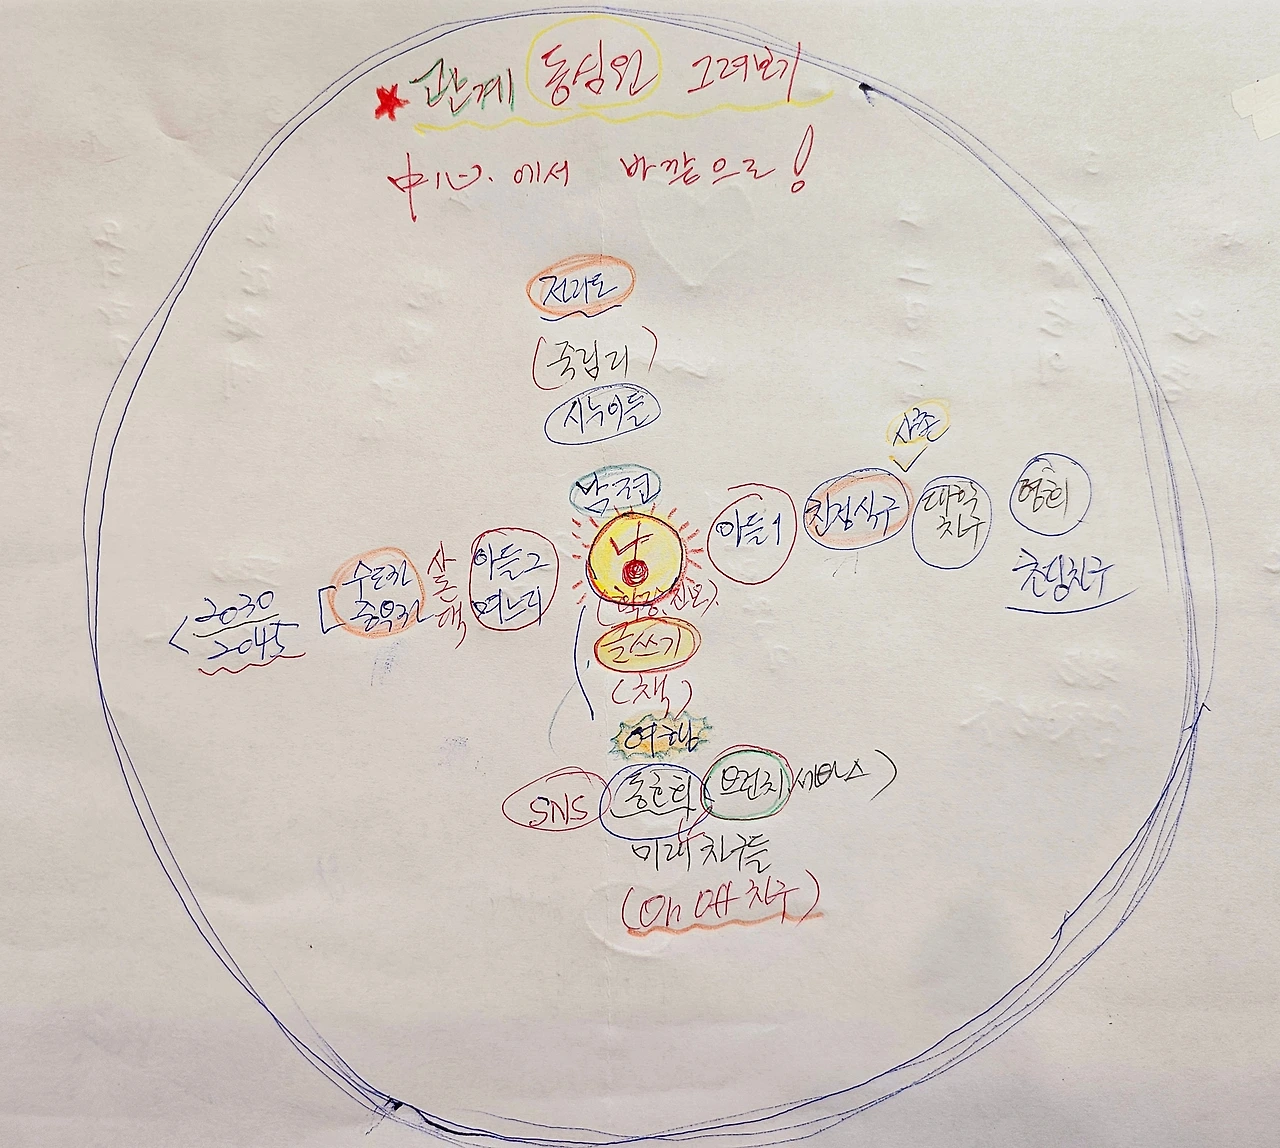 ★ 관계 동심원 그려보기
中心에서 바깥으로!
전라도
(죽림리)
시누이들
남편
나
글쓰기
(책)
여행
SNS 동호회 (브런치 서비스)
미래 친구들
(on off 친구)
아들1
친정식구
사촌
대학
친구
영희
초딩친구
아들2
며느리
산책
수도권
2030
2045